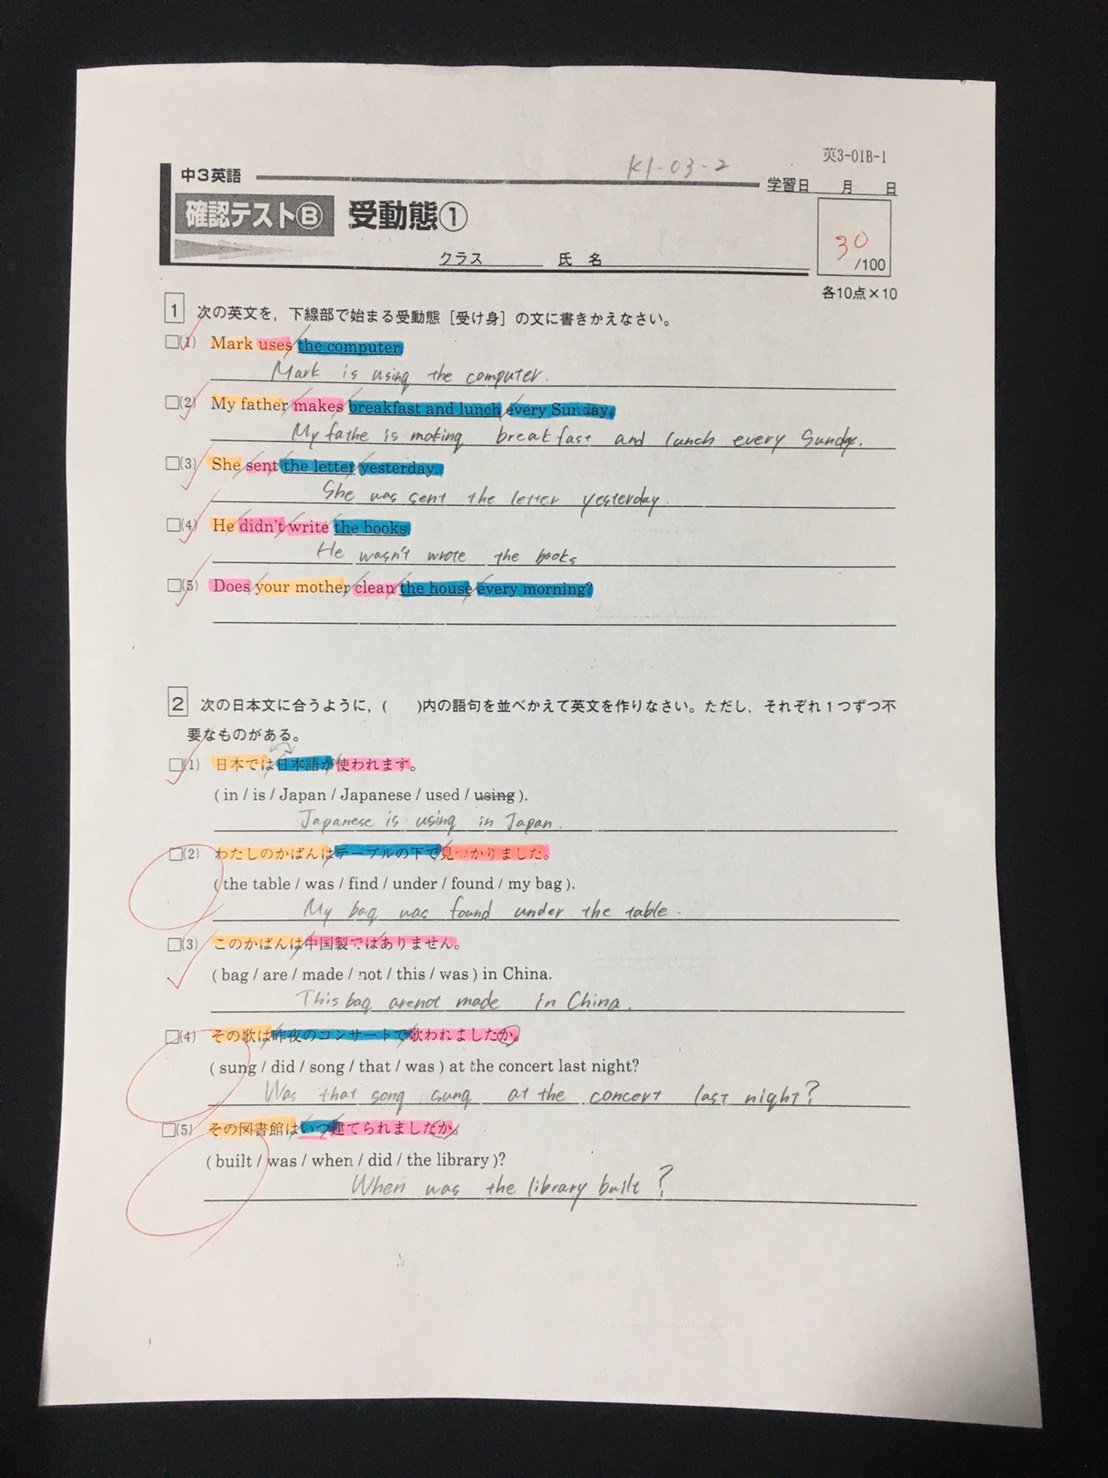 K1-03-2
英3-01B-1
中3英語
学習日 月 日
確認テストⒷ 受動態①
30
/100
クラス 氏 名
各10点×10
1 次の英文を，下線部で始まる受動態［受け身］の文に書きかえなさい。
□(1) Mark uses the computer.
Mark is using the computer.
□(2) My father makes breakfast and lunch every Sunday.
My fathe is making breakfast and lunch every Sunday.
□(3) She sent the letter yesterday.
She was sent the letter yesterday.
□(4) He didn't write the books.
He wasn't wrote the books
□(5) Does your mother clean the house every morning?
2 次の日本文に合うように，( )内の語句を並べかえて英文を作りなさい。ただし，それぞれ1つずつ不
要なものがある。
□(1) 日本では日本語が使われます。
( in / is / Japan / Japanese / used / using ).
Japanese is using in Japan.
□(2) わたしのかばんはテーブルの下で見つかりました。
( the table / was / find / under / found / my bag ).
My bag was found under the table.
□(3) このかばんは中国製ではありません。
( bag / are / made / not / this / was ) in China.
This bag arenot made in China.
□(4) その歌は昨夜のコンサートで歌われましたか。
( sung / did / song / that / was ) at the concert last night?
Was that song sung at the concert last night?
□(5) その図書館はいつ建てられましたか。
( built / was / when / did / the library )?
When was the library built?